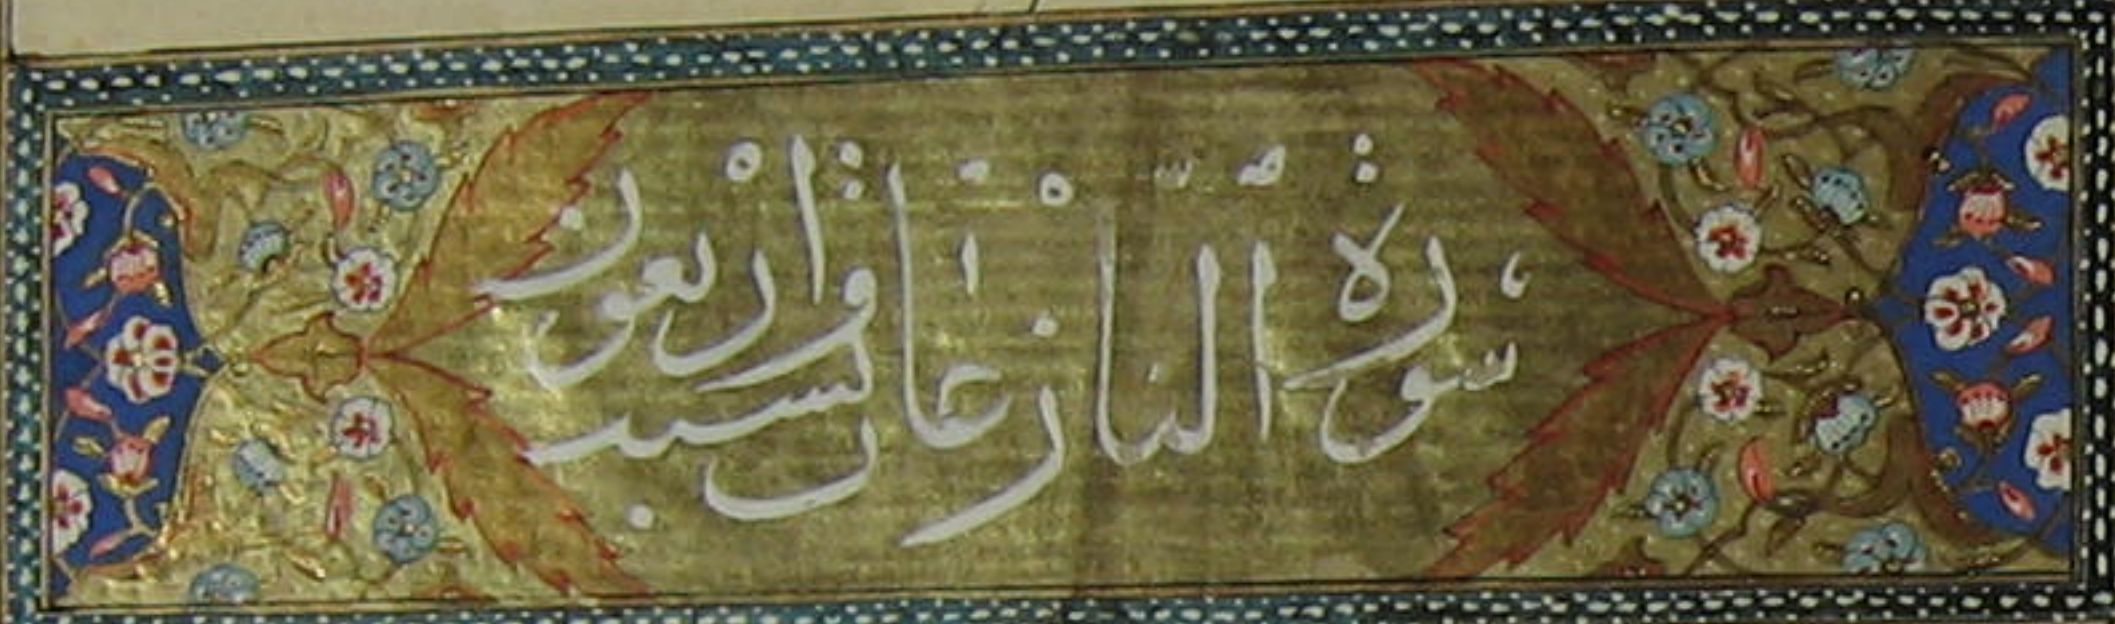 سورة النازعات ست واربعون